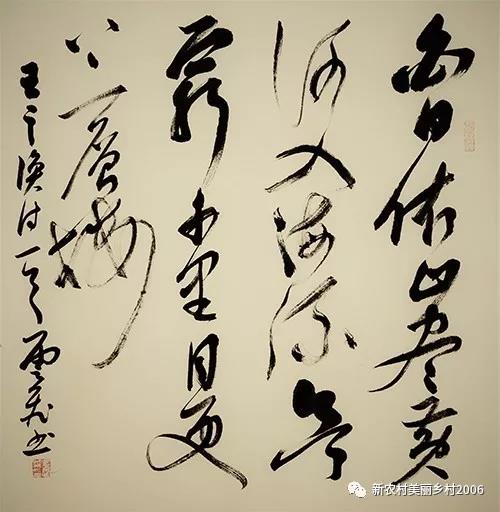 白日依山尽黄
河入海流欲
穷千里目更
上一層楼
王之涣诗一
书
新农村美丽乡村2006